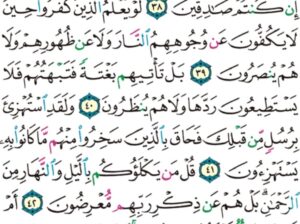 إِن كُنتُمْ صَٰدِقِينَ ٣٨ لَوْ يَعْلَمُ ٱلَّذِينَ كَفَرُوا۟ حِينَ
لَا يَكُفُّونَ عَن وُجُوهِهِمُ ٱلنَّارَ وَلَا عَن ظُهُورِهِمْ وَلَا
هُمْ يُنصَرُونَ ٣٩ بَلْ تَأْتِيهِم بَغْتَةً فَتَبْهَتُهُمْ فَلَا
يَسْتَطِيعُونَ رَدَّهَا وَلَا هُمْ يُنظَرُونَ ٤٠ وَلَقَدِ ٱسْتُهْزِئَ
بِرُسُلٍ مِّن قَبْلِكَ فَحَاقَ بِٱلَّذِينَ سَخِرُوا۟ مِنْهُم مَّا كَانُوا۟ بِهِۦ
يَسْتَهْزِءُونَ ٤١ قُلْ مَن يَكْلَؤُكُم بِٱلَّيْلِ وَٱلنَّهَارِ مِنَ
ٱلرَّحْمَٰنِ ۗ بَلْ هُمْ عَن ذِكْرِ رَبِّهِم مُّعْرِضُونَ ٤٢ أَمْ